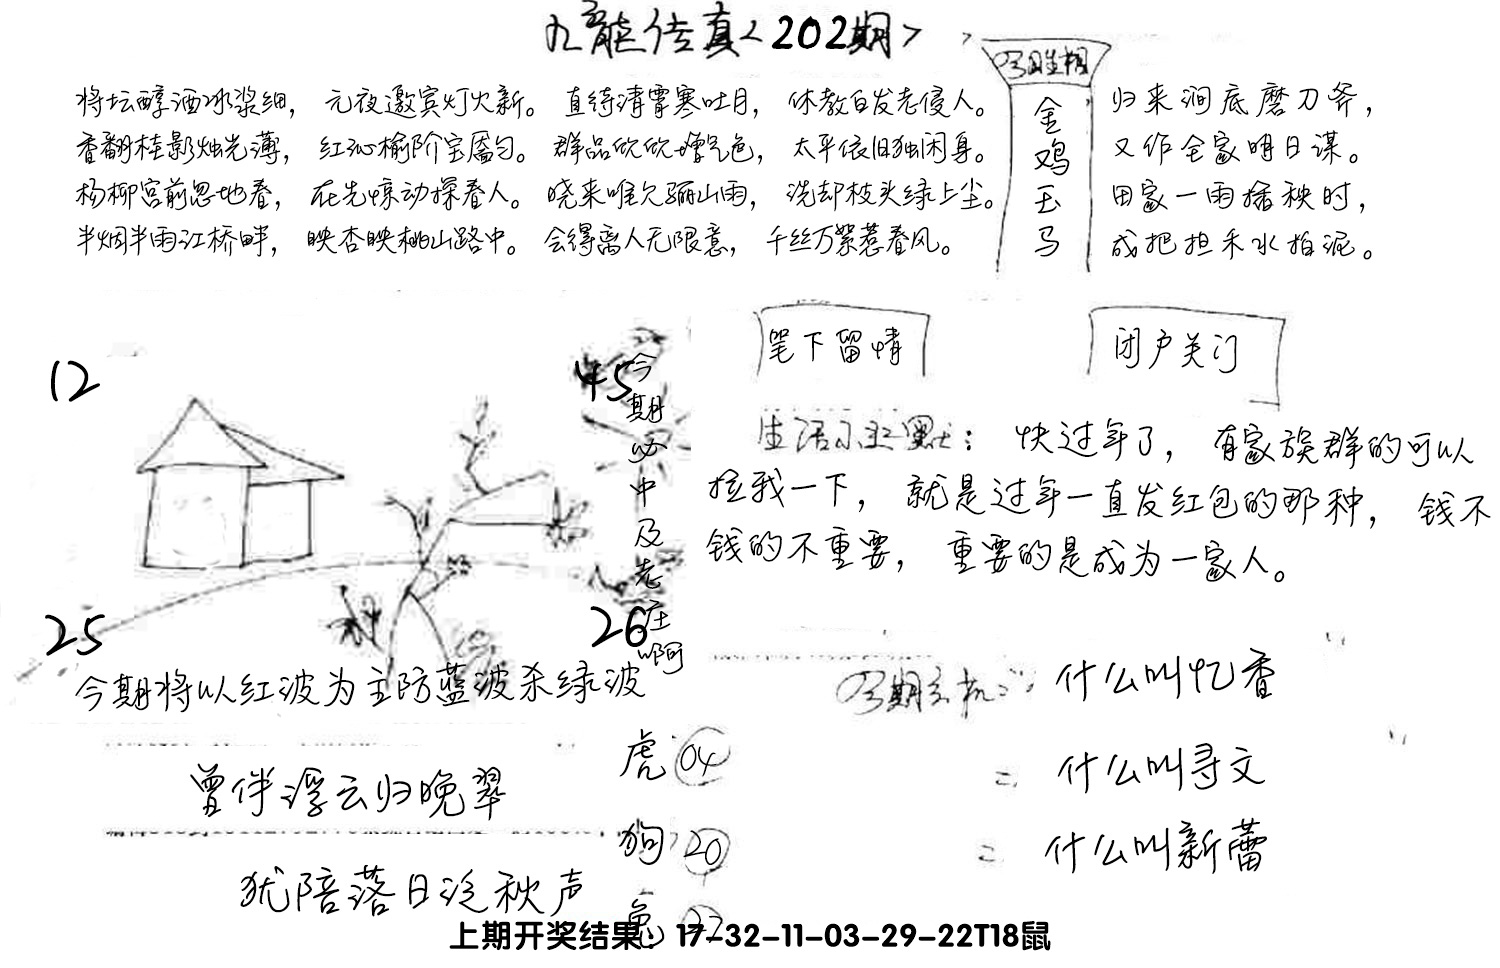 九龍传真<202期>
今日生相
金鸡玉马
将坛醇酒冰浆细，元夜邀宾灯火新。直待清霄寒吐月，休教白发老侵人。
香翻桂影烛光薄，红沁榆阶宝靥匀。群品欣欣增气色，太平依旧独闲身。
杨柳宫前忽地春，在先惊动探春人。晓来唯欠骊山雨，洗却枝头绿上尘。
半烟半雨江桥畔，映杏映桃山路中。会得离人无限意，千丝万絮惹春风。
归来涧底磨刀斧，
又作全家明日谋。
田家一雨播秧时，
成把担禾水拍泥。
笔下留情
闭户关门
12
45
25
26
今期必中及老庄啊
今期将以红波为主防蓝波杀绿波
生活小幽默：快过年了，有家族群的可以
拉我一下，就是过年一直发红包的那种，钱不
钱的不重要，重要的是成为一家人。
今期玄机：什么叫忆香
= 什么叫寻文
= 什么叫新蕾
曾伴浮云归晚翠
犹陪落日泛秋声
虎 04
狗 20
兔
上期开奖结果：17-32-11-03-29-22T18鼠